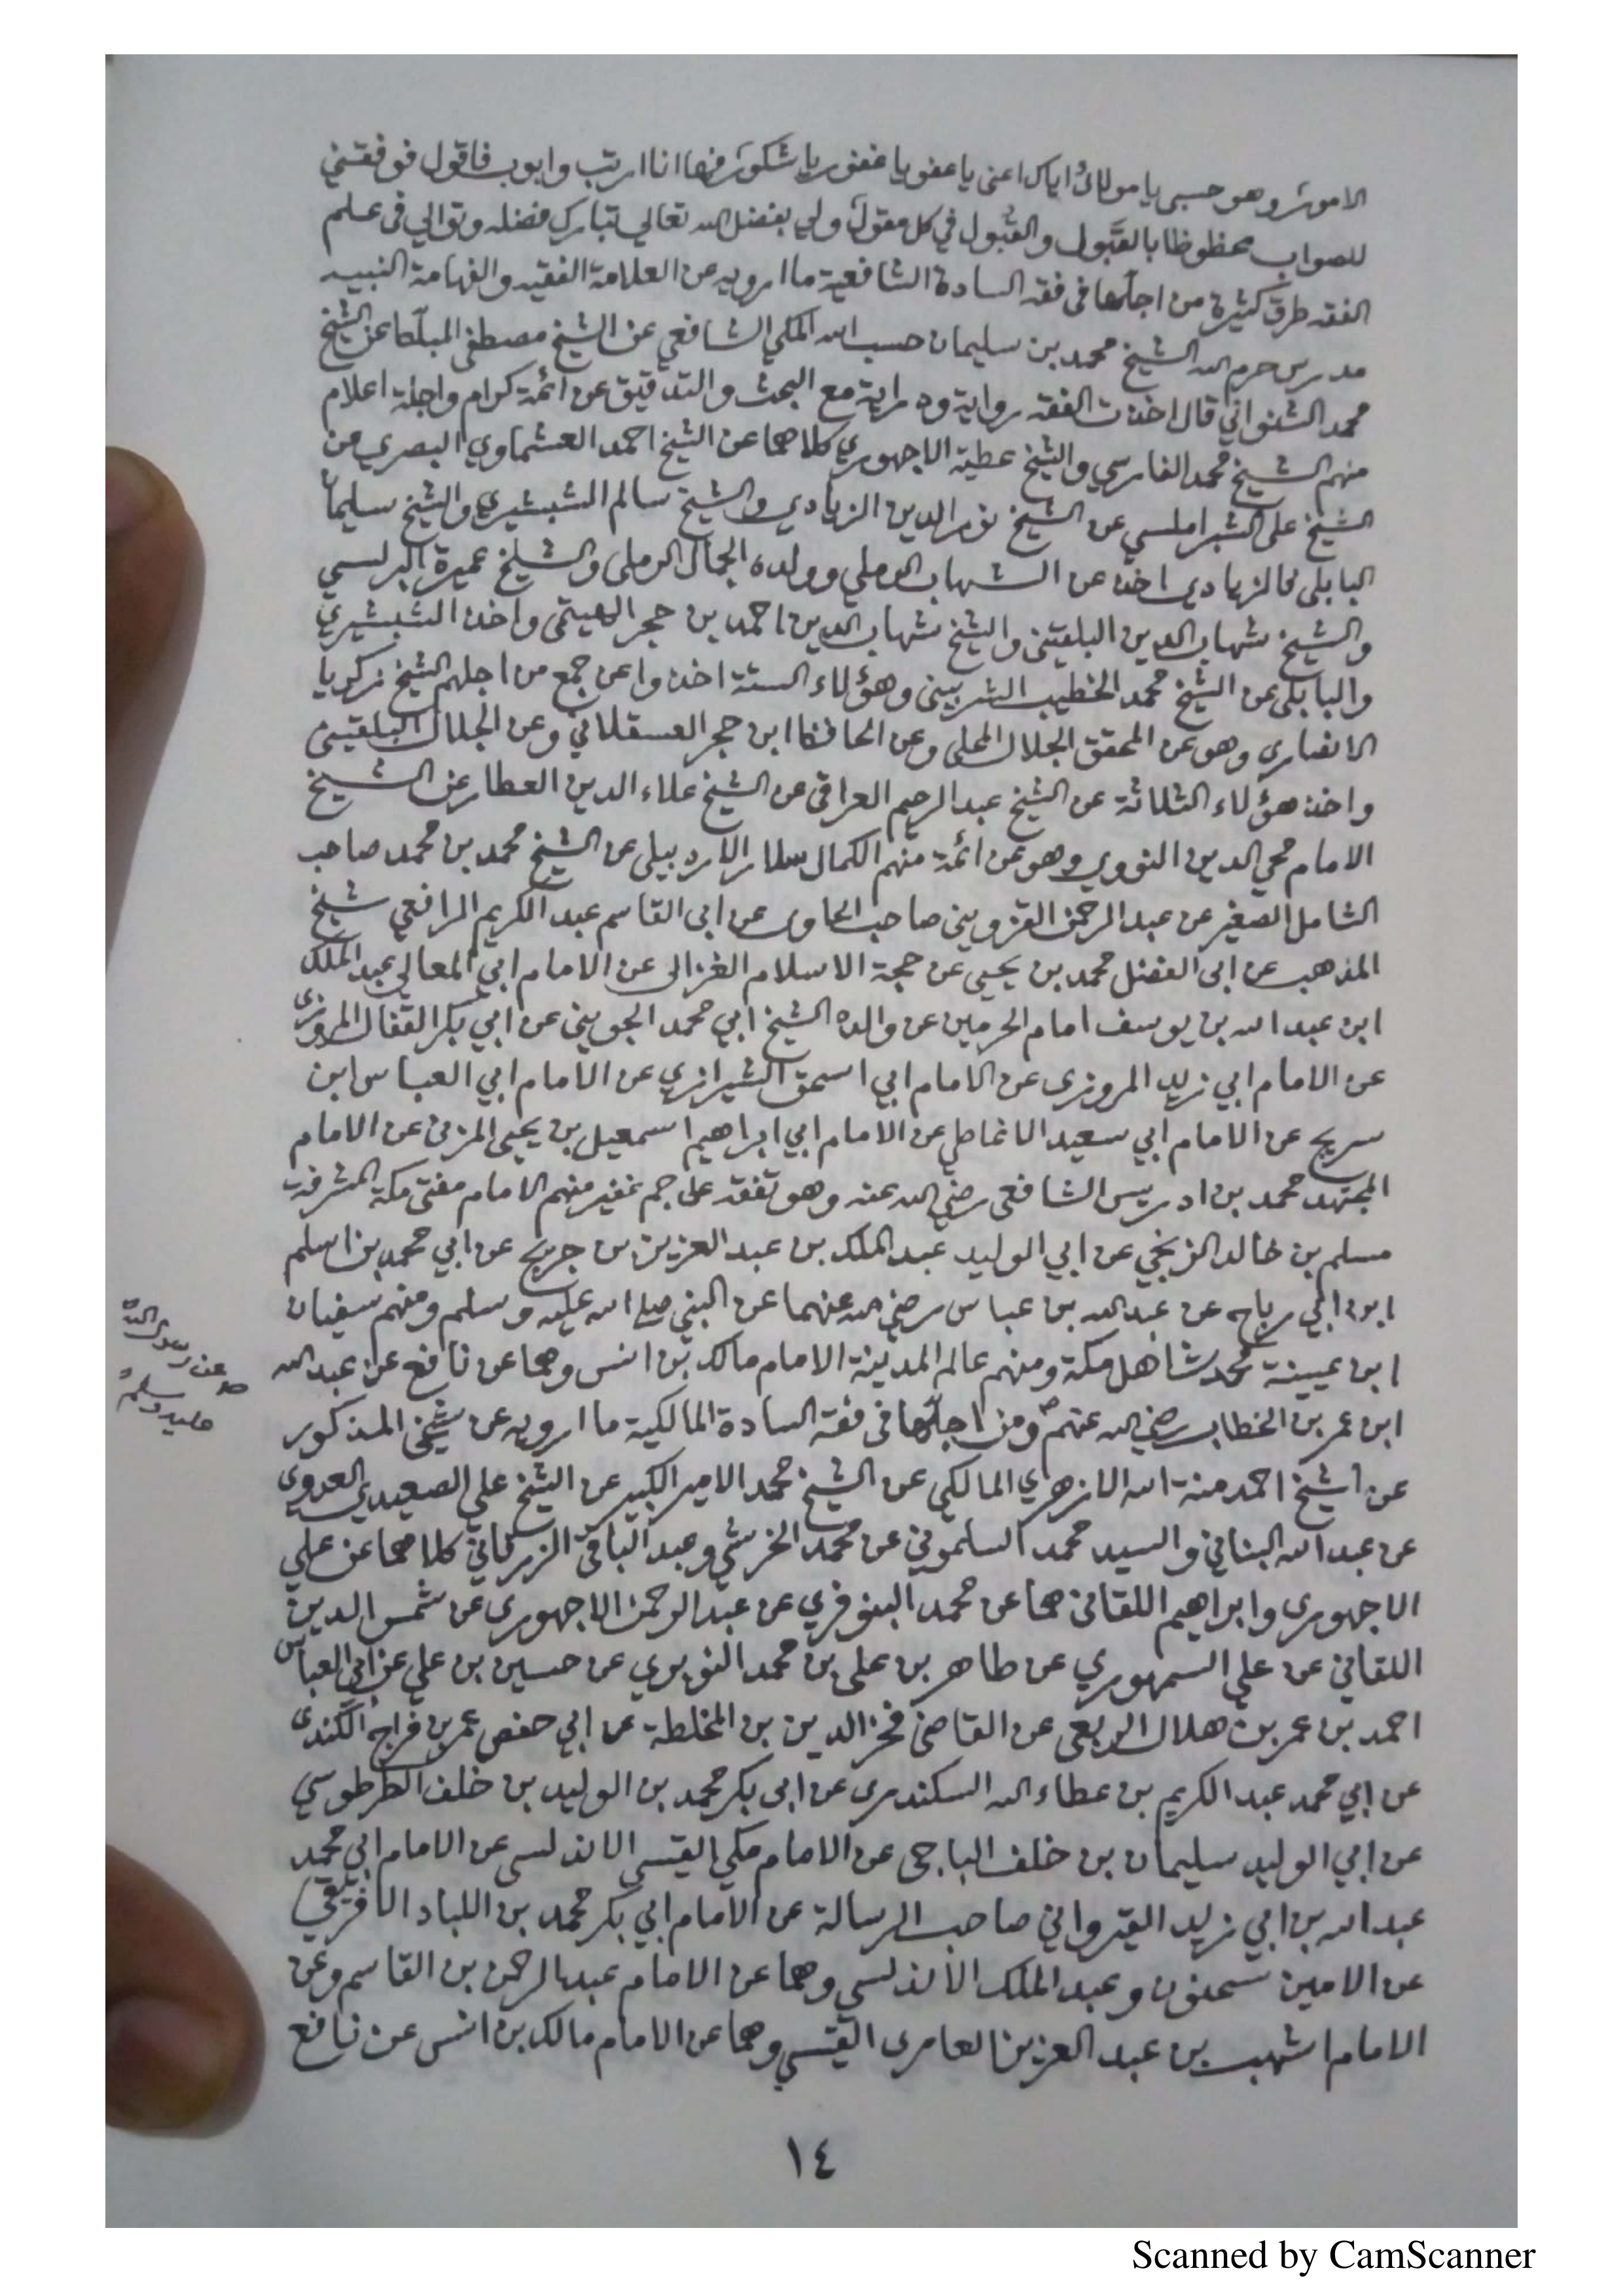 الامور وهو حسبي يا مولاي اياك اعني يا عفو يا غفور يا شكور فها انا ارتب وابوب فاقول فوفقني
للصواب محظوظا بالقبول والقبول في كل مقول ولي بفضل الله تعالى تبارك فضله وتوالي في علم
الفقه طرق كثيرة من اجلها في فقه السادة الشافعية ما ارويه عن العلامة الفقيه والفهامة النبيه
مدرس حرم الله الشيخ محمد بن سليمان حسب الله المكي الشافعي عن الشيخ مصطفى المبلط عن الشيخ
محمد الشنواني قال اخذت الفقه رواية ودراية مع البحث والتدقيق عن ائمة كرام واجلة اعلام
منهم الشيخ محمد الفارسي والشيخ عطية الاجهوري كلاهما عن الشيخ احمد العشماوي البصري عن
الشيخ على الشبراملسي عن الشيخ نور الدين الزيادي والشيخ سالم الشبشيري والشيخ سليمان
البابلى فالزيادي اخذ عن الشهاب الرملي وولده الجمال الرملى والشيخ عميرة البرلسي
والشيخ شهاب الدين البلقيني والشيخ شهاب الدين احمد بن حجر الهيتمى واخذ الشبشيري
والبابلى عن الشيخ محمد الخطيب الشربيني وهؤلاء الستة اخذوا عن جمع من اجلهم الشيخ زكريا
الانصاري وهو عن المحقق الجلال المحلى وعن الحافظ ابن حجر العسقلاني وعن الجلال البلقيني
واخذ هؤلاء الثلاثة عن الشيخ عبد الرحيم العراقي عن الشيخ علاء الدين العطار عن الشيخ
الامام محي الدين النووي وهو عن ائمة منهم الكمال سلار الاردبيلى عن الشيخ محمد بن محمد صاحب
الشامل الصغير عن عبد الرحمن القزويني صاحب الحاوى عن ابى القاسم عبد الكريم الرافعي شيخ
المذهب عن ابى الفضل محمد بن يحيى عن حجة الاسلام الغزالى عن الامام ابي المعالي عبد الملك
ابن عبد الله بن يوسف امام الحرمين عن والده الشيخ ابي محمد الجويني عن ابي بكر القفال المروزى
عن الامام ابي زيد المروزى عن الامام ابي اسحق الشيرازي عن الامام ابي العباس ابن
سريج عن الامام ابي سعيد الانماطي عن الامام ابي ابراهيم اسمعيل بن يحيى المزنى عن الامام
المجتهد محمد بن ادريس الشافعى رضي الله عنه وهو تفقه على جم غفير منهم الامام مفتى مكة المشرفة
مسلم بن خالد الزنجي عن ابي الوليد عبد الملك بن عبد العزيز بن جريج عن ابي محمد بن اسلم
ابن ابي رباح عن عبد الله بن عباس رضي الله عنهما عن النبي صلى الله عليه وسلم ومنهم سفيان
ابن عيينة محدث اهل مكة ومنهم عالم المدينة الامام مالك بن انس وهما عن نافع عن عبد الله
ابن عمر بن الخطاب رضي الله عنهم ص ومن اجلها في فقه السادة المالكية ما ارويه عن شيخي المذكور
عن رسول الله
ص
عليه وسلم
عن الشيخ احمد منة الله الازهري المالكي عن الشيخ محمد الامير الكبير عن الشيخ علي الصعيدي العدوى
عن عبد الله البناني والسيد محمد السلموني عن محمد الخرشي وعبد الباقى الزرقاني كلاهما عن علي
الاجهورى وابراهيم اللقانى هما عن محمد البنوفري عن عبد الرحمن الاجهوري عن شمس الدين
اللقاني عن علي السنهوري عن طاهر بن على بن محمد النويري عن حسين بن علي عن ابي العباس
احمد بن عمر بن هلال الربعى عن القاضي فخر الدين بن المخلطة عن ابي حفص عمر بن فراج الكندى
عن ابي محمد عبد الكريم بن عطاء الله السكندرى عن ابى بكر محمد بن الوليد بن خلف الطرطوسي
عن ابي الوليد سليمان بن خلف الباجى عن الامام مكي القيسي الاندلسى عن الامام ابي محمد
عبد الله بن ابي زيد القيرواني صاحب الرسالة عن الامام ابي بكر محمد بن اللباد الافريقي
عن الامين سحنون وعبد الملك الاندلسي وهما عن الامام عبد الرحمن بن القاسم وعن
الامام اشهب بن عبد العزيز العامرى القيسي وهما عن الامام مالك بن انس عن نافع
١٤
Scanned by CamScanner